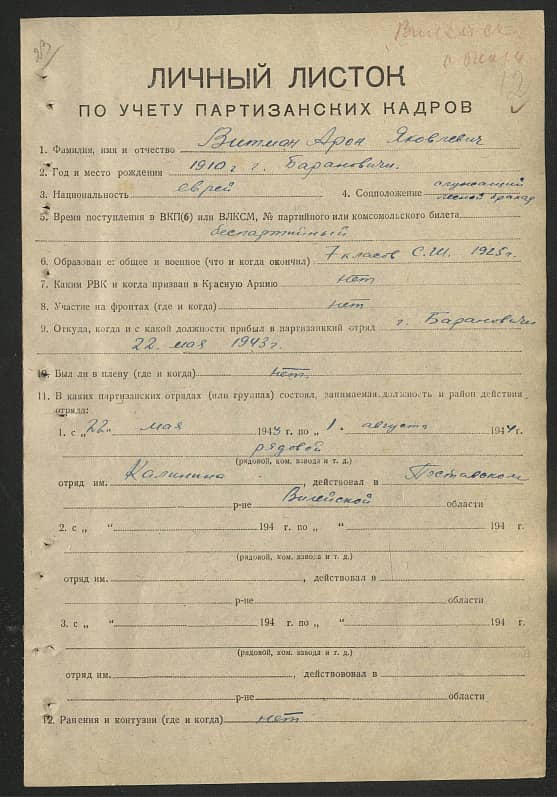 23
Вилейск.
ЛИЧНЫЙ ЛИСТОК
ПО УЧЕТУ ПАРТИЗАНСКИХ КАДРОВ
1. Фамилия, имя и отчество Витман Арон Яковлевич
2. Год и место рождения 1910 г г. Барановичи.
3. Национальность еврей 4. Соцположение служащий
лесной бракар
5. Время поступления в ВКП(б) или ВЛКСМ, № партийного или комсомольского билета
беспартийный
6. Образован е: общее и военное (что и когда окончил) 7 класов С.Ш. 1925 г.
7. Каким РВК и когда призван в Красную Армию нет
8. Участие на фронтах (где и когда) нет
9. Откуда, когда и с какой должности прибыл в партизанкий отряд г. Барановичи
22. мая 1943 г.
10. Был ли в плену (где и когда) нет.
11. В каких партизанских отрядах (или группах) состоял, занимаемая должность и район действия
отряда:
1. с „22„ мая 1943 г. по „1. августа 1944 г.
рядовой
(рядовой, ком. взвода и т. д.)
отряд им. Калинина , действовал в Поставском
р-не Вилейской области
2. с „ “ 194 г. по „ “ 194 г.
(рядовой, ком. взвода и т. д.)
отряд им. , действовал в
р-не области
3. с „ “ 194 г. по „ “ 194 г.
(рядовой, ком. взвода и т. д.)
отряд им. , действововал в
р-не области
12. Ранения и контузии (где и когда) нет